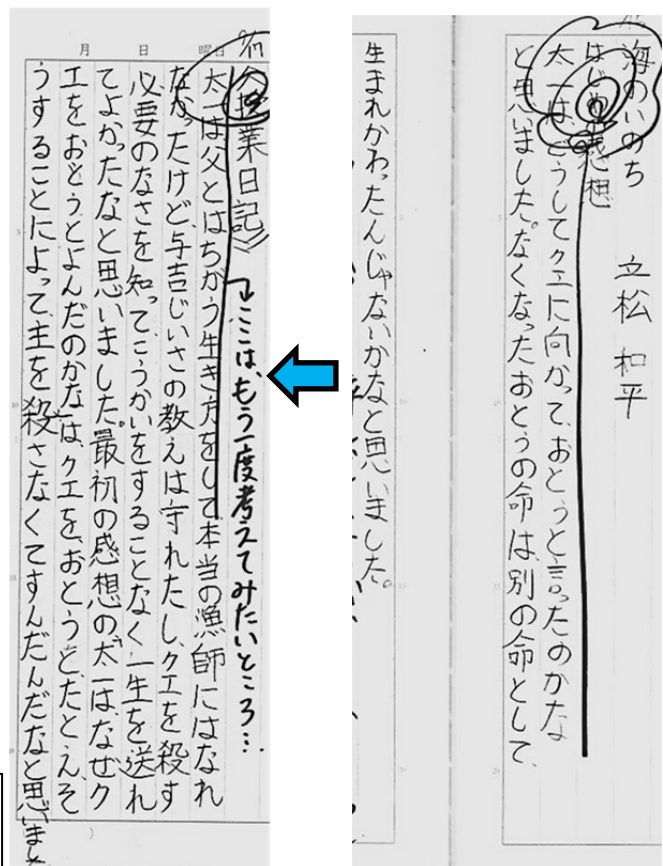 海のいのち
立松 和平
はじめの感想
太一は、どうしてクエに向かって、おとうと言ったのかな
と思いました。なくなったおとうの命は、別の命として、
生まれかわったんじゃないかなと思いました。
9/17
月 日 曜日
授業日記》
ここは、もう一度考えてみたいところ…
太一は父とはちがう生き方をして本当の漁師にはなれ
なかったけど、与吉じいさの教えは守れたし、クエを殺す
必要のなさを知って、こうかいをすることなく一生を送れ
てよかったなと思いました。最初の感想の、太一は、なぜク
エをおとうとよんだのかなは、クエを、おとうと、たとえ、そ
うすることによって、主を殺さなくてすんだんだなと思いました